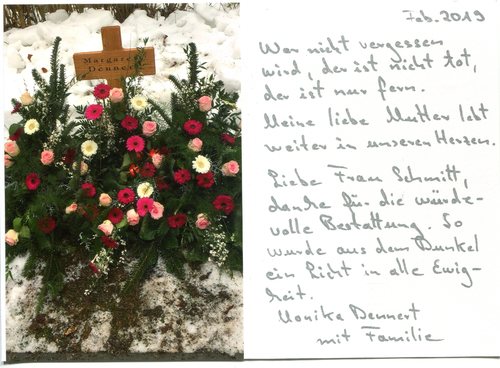 Margaret
Dennert
Feb. 2019
Wer nicht vergessen
wird, der ist nicht tot,
der ist nur fern.
Meine liebe Mutter lebt
weiter in unseren Herzen.
Liebe Frau Schmitt,
danke für die würde-
volle Bestattung. So
wurde aus dem Dunkel
ein Licht in alle Ewig-
keit.
Monika Dennert
mit Familie